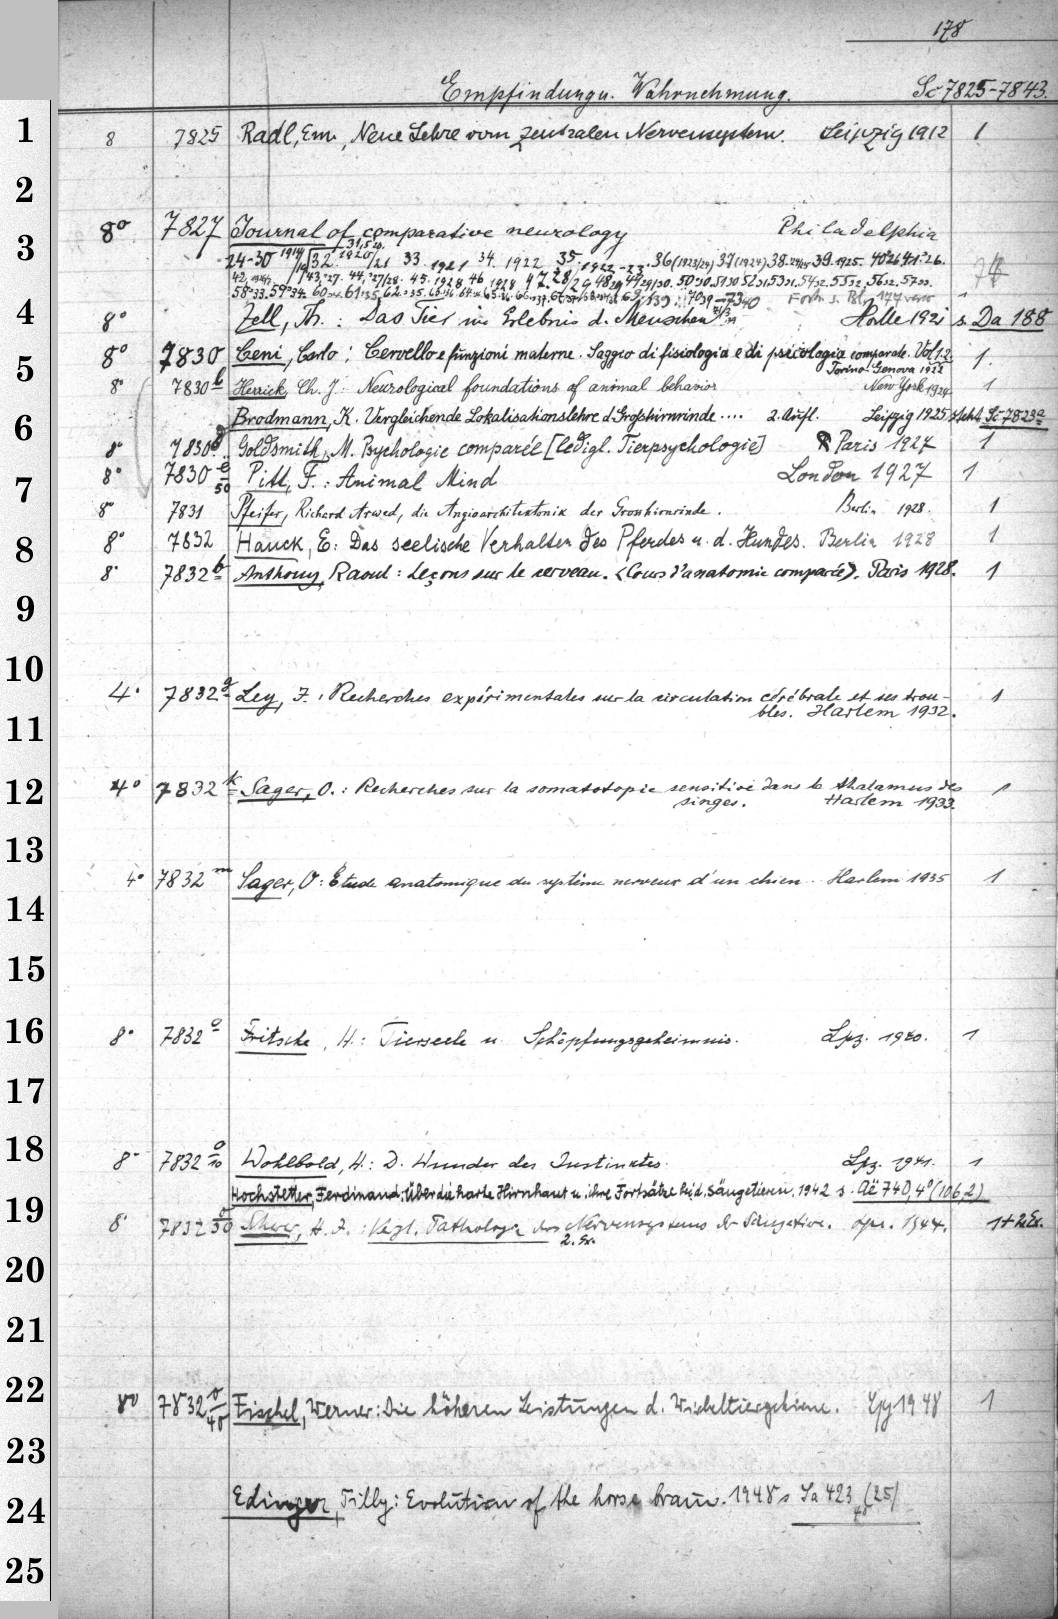 178
Empfindung u. Wahrnehmung. Sc 7825-7843.
1
8 7825 Radl, Em., Neue Lehre vom zentralen Nervensystem. Leipzig 1912 1
2
8° 7827 Journal of comparative neurology Philadelphia
3
24-30 1914/ 32. 1920/21 33. 1921 34. 1922 35, 1922-23. 36(1923/24) 37(1924) 38. 39. 1925. 40 26 41. 26.
4
8° Zell, Th.: Das Tier im Erlebnis d. Menschen Halle 1921 s. Da 188
5
8° 7830 Ceni, Carlo: Cervello e funzioni materne. Saggio di fisiologia e di psicologia comparate. Vol 1.2. 1.
Torino-Genova 1922
8° 7830 b Herrick, Ch. J. Neurological foundations of animal behavior New York 1924 1
6
Brodmann, K. Vergleichende Lokalisationslehre d. Großhirnrinde .... 2. Aufl. Leipzig 1925 Sc 7823a
8° 7830 d Goldsmith, M. Psychologie comparée [ledigl. Tierpsychologie] Paris 1927 1
7
8° 7830 e/50 Pitt, F.: Animal Mind London 1927 1
8° 7831 Pfeifer, Richard Arwed, die Angioarchitektonik der Grosshirnrinde. Berlin 1928. 1
8
8° 7832 Hauck, E: Das seelische Verhalten des Pferdes u. d. Hundes. Berlin 1928 1
8° 7832 b Anthony, Raoul: Leçons sur le cerveau. <Cours d'anatomie comparée>. Paris 1928. 1
9
10
4° 7832 g Ley, J.: Recherches expérimentales sur la circulation cérébrale et ses trou- 1
bles. Harlem 1932.
11
12
4° 7832 k Sager, O.: Recherches sur la somatotopie sensitive dans le thalamus des 1
singes. Harlem 1933.
13
4° 7832 m Sager, O: Étude anatomique du système nerveux d'un chien. Harlem 1935 1
14
15
16
8° 7832 o Fritsche, H.: Tierseele u. Schöpfungsgeheimnis. Lpz. 1940. 1
17
18
8° 7832 o/10 Wohlbold, H.: D. Wunder des Instinktes. Lpz. 1941. 1
19
Hochstetter, Ferdinand: Über die harte Hirnhaut u. ihre Fortsätze bei d. Säugetieren. 1942 s. Aë 740, 4° (106,2)
8° 7832 o/30 H. J.: Vergl. Pathologie des Nervensystems der Säugetiere. 1944. 1+2.Ex.
2. Ex.
20
21
22
8° 7832 o/40 Fischel, Werner: Die höheren Leistungen d. Wirbeltiergehirne. Lpg 1948 1
23
24
Edinger, Tilly: Evolution of the horse brain. 1948 s Sa 423 (25)
25